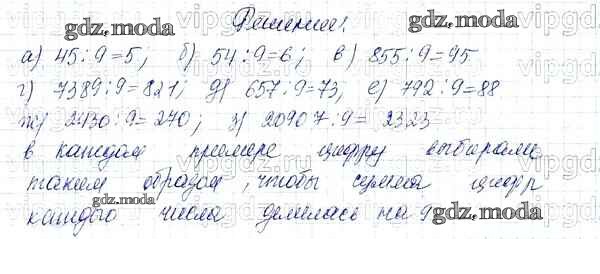 Решение:
а) 45:9=5; б) 54:9=6; в) 855:9=95
г) 7389:9=821; д) 657:9=73; е) 792:9=88
ж) 2430:9=270; з) 20907:9= 2323
в каждом примере цифру выбираем
таким образом, чтобы сумма цифр
каждого числа делилась на 9
gdz.moda
gdz.moda
gdz.moda
gdz.moda
gdz.moda